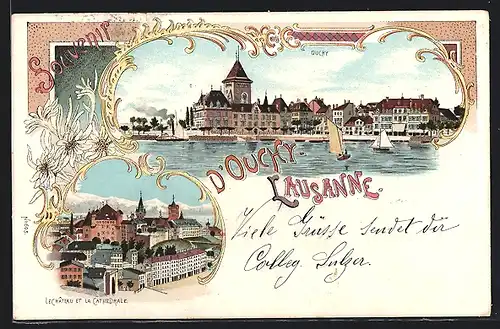 SOUVENIR
OUCHY
D'OUCHY.
LAUSANNE.
LE CHÂTEAU ET LA CATHÉDRALE
Viele Grüsse sendet dir
Colleg. Sulzer.